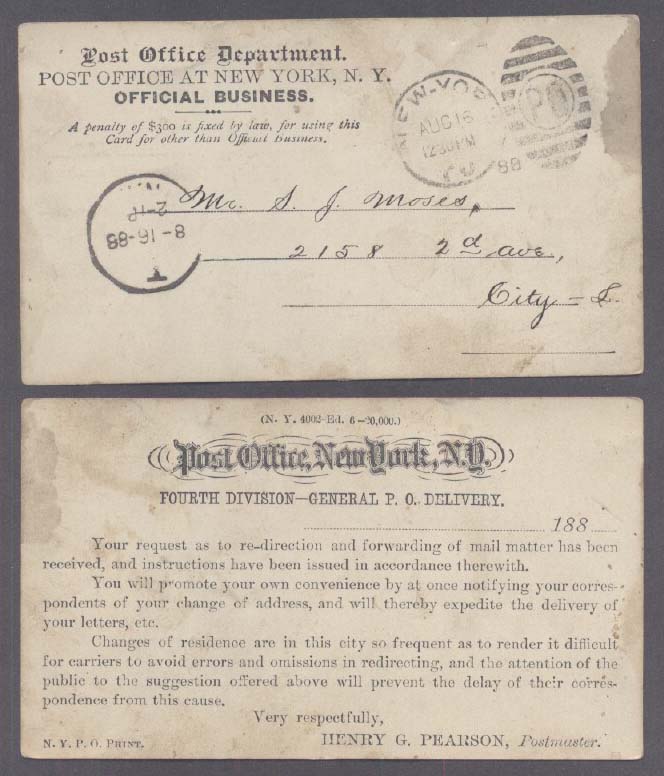 Post Office Department.
POST OFFICE AT NEW YORK, N. Y.
OFFICIAL BUSINESS.
A penalty of $300 is fixed by law, for using this
Card for other than Official Business.
NEW-YORK
AUG 16
12 30 PM
88
P O
8-16-88
2-P
T
Mr. S. J. Moses,
2158 2d ave,
City - L.
(N. Y. 4002-Ed. 6-20,000.)
Post Office, New York, N.Y.
FOURTH DIVISION—GENERAL P. O. DELIVERY.
188
Your request as to re-direction and forwarding of mail matter has been
received, and instructions have been issued in accordance therewith.
You will promote your own convenience by at once notifying your corres-
pondents of your change of address, and will thereby expedite the delivery of
your letters, etc.
Changes of residence are in this city so frequent as to render it difficult
for carriers to avoid errors and omissions in redirecting, and the attention of the
public to the suggestion offered above will prevent the delay of their corres-
pondence from this cause.
Very respectfully,
N. Y. P. O. PRINT. HENRY G. PEARSON, Postmaster.